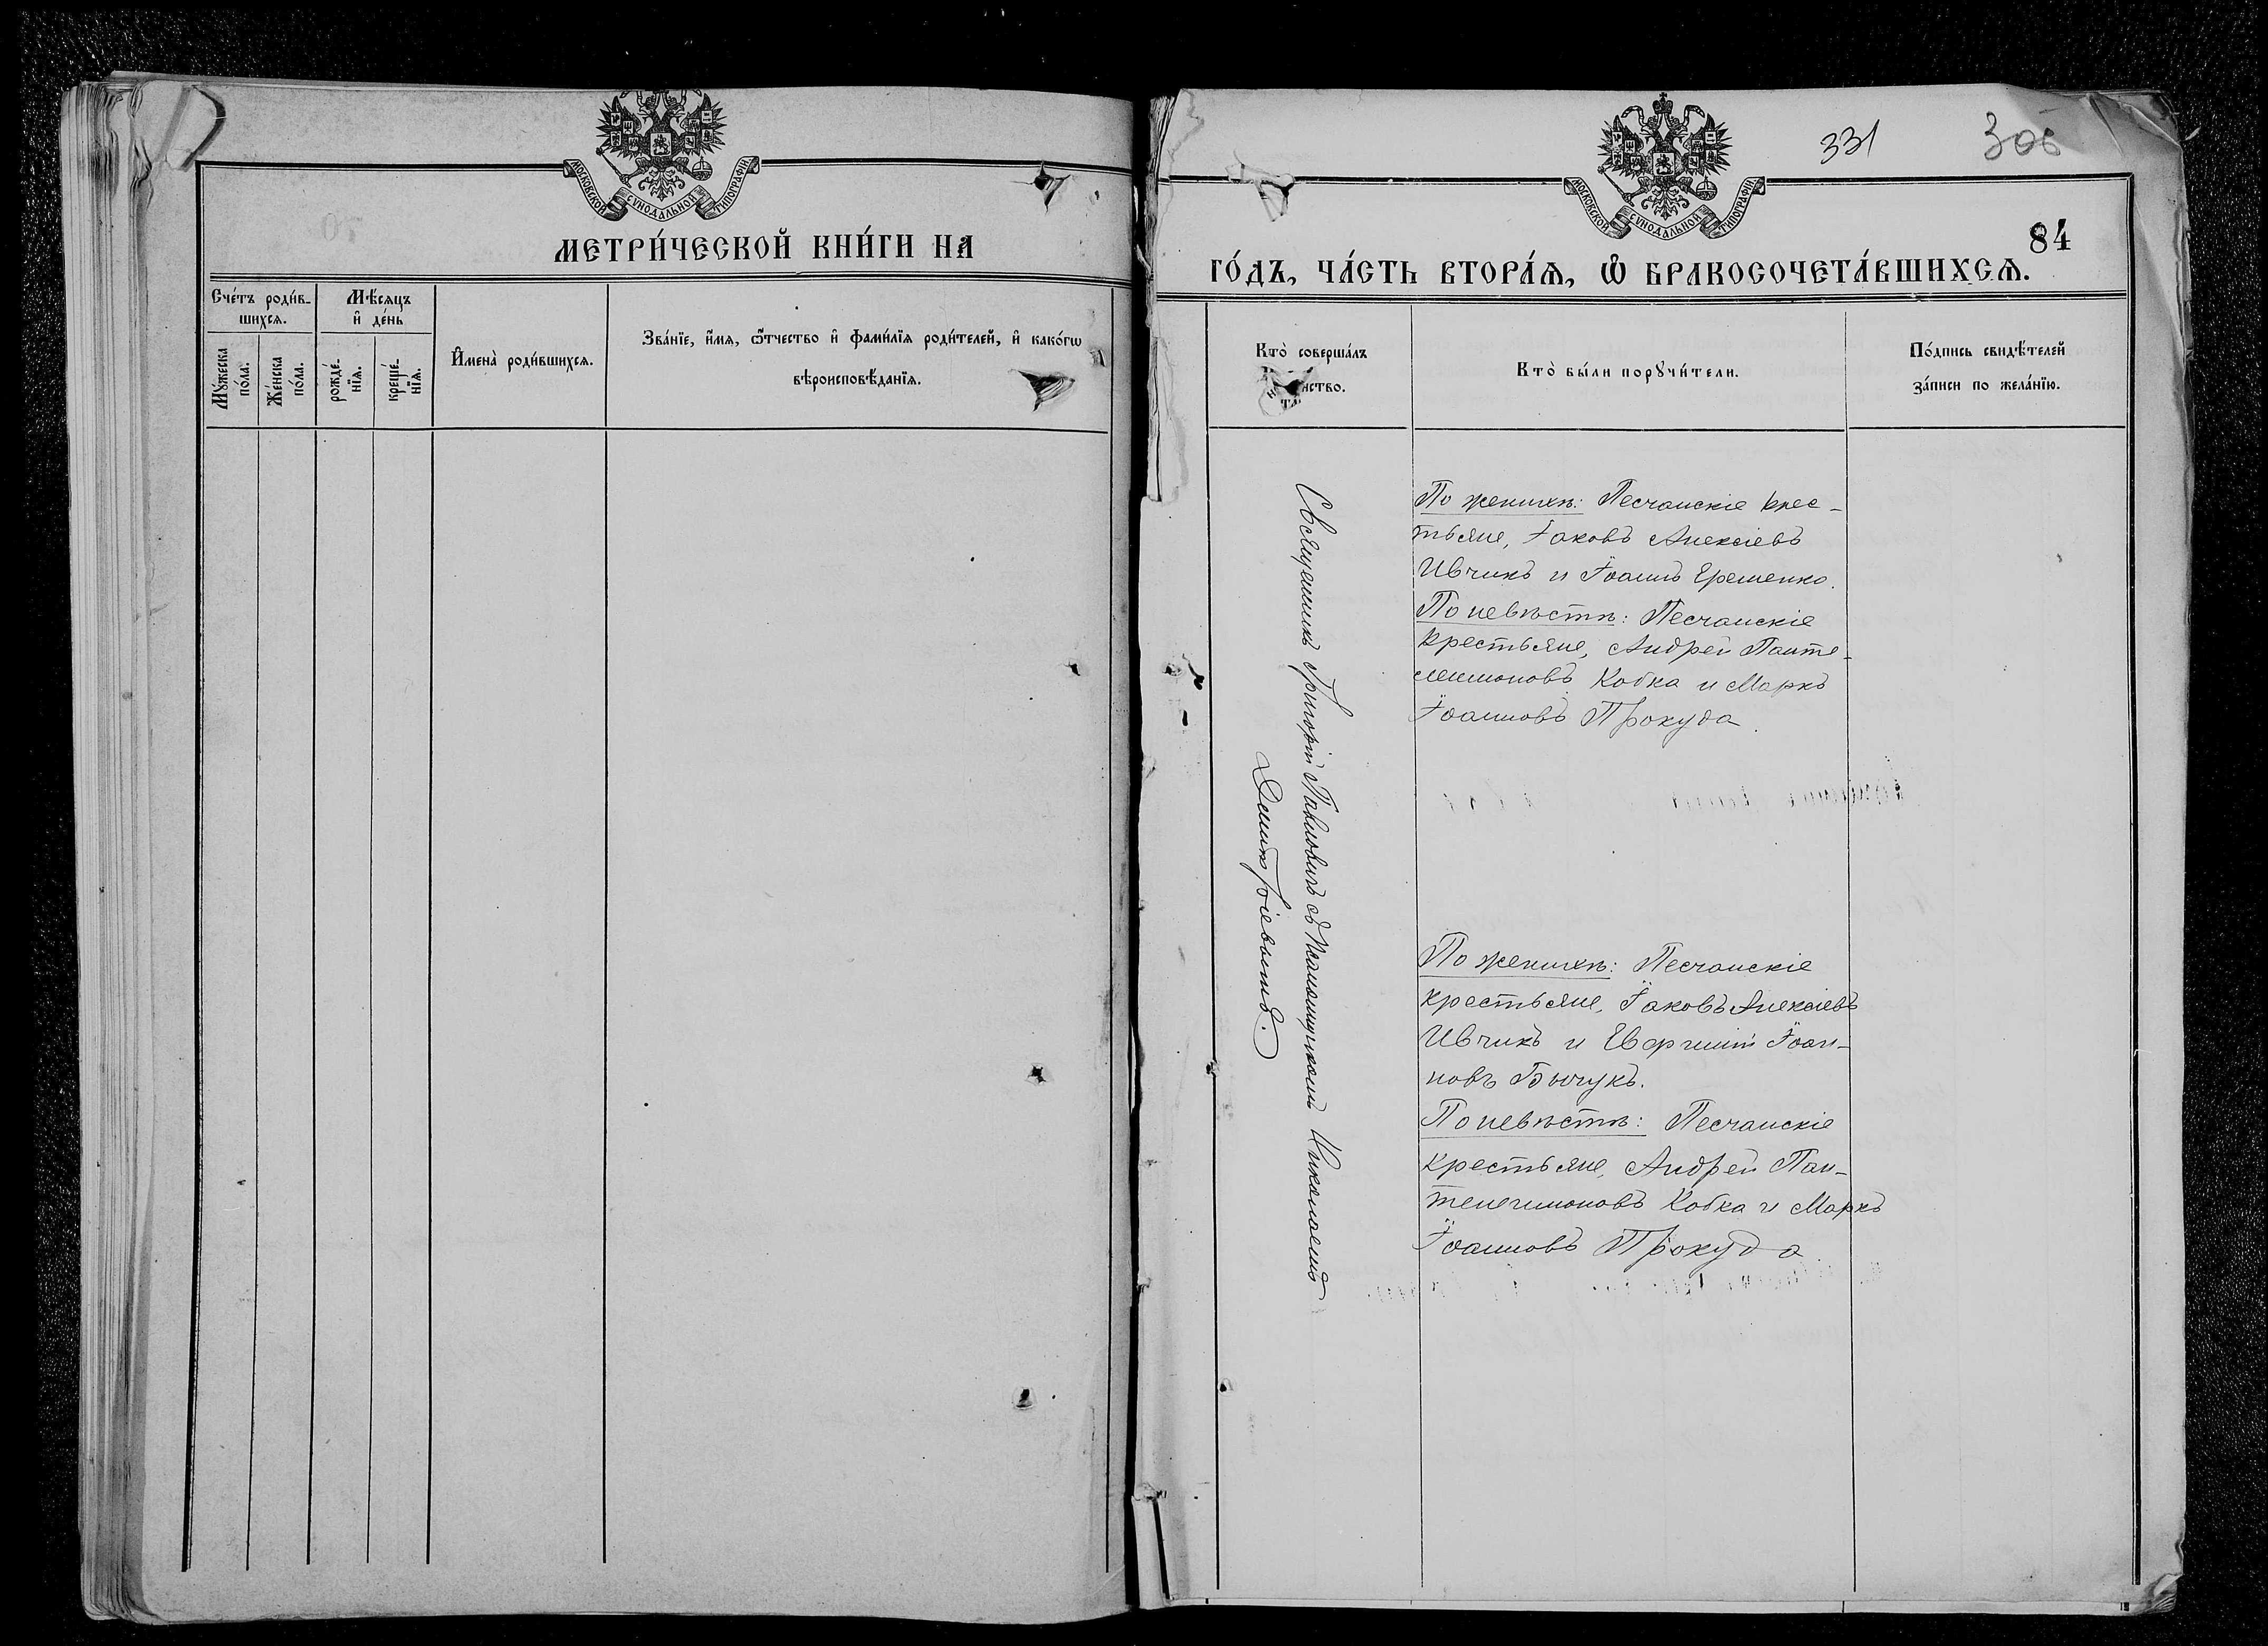 МОСКОВСКОЙ СѴНОДАЛЬНОЙ ТИПОГРАФІИ
МЕТРИ́ЧЕСКОЙ КНИ́ГИ НА
Сче́тъ роди́в-
шихсѧ.
Мѣ́сѧцъ
и҆ де́нь
Мꙋ́жеска
по́ла.
Же́нска
по́ла.
рожде́-
нїѧ.
креще́-
нїѧ.
И҆мена̀ роди́вшихсѧ.
Зва́нїе, и҆́мѧ, ѻ҆́тчество и҆ фами́лїѧ роди́телей, и҆ како́гѡ
вѣроисповѣ́данїѧ.
МОСКОВСКОЙ СѴНОДАЛЬНОЙ ТИПОГРАФІИ
331
306
84
ГО́ДЪ, ЧА́СТЬ ВТОРА́Ѧ, Ѽ БРАКОСОЧЕТА́ВШИХСѦ.
Кто̀ соверша́лъ
та нство.
Кто̀ бы́ли порꙋчи́тели.
По́дпись свидѣ́телей
за́писи по жела́нїю.
Священникъ Григорій Павловичъ съ Псаломщикомъ Николаемъ
Димитріевымъ.
По женихѣ: Песчанскіе крес-
тьяне, Іаковъ Алексіевъ
Ивчикъ и Іоаннъ Ерешенко.
По невѣстѣ: Песчанскіе
крестьяне, Андрей Панте-
леимоновъ Кобка и Маркъ
Іоанновъ Прокуда.
По женихѣ: Песчанскіе
крестьяне, Іаковъ Алексіевъ
Ивчикъ и Евфимій Іоан-
новъ
По невѣстѣ: Песчанскіе
крестьяне, Андрей Пан-
телеимоновъ Кобка и Маркъ
Іоанновъ Прокуда